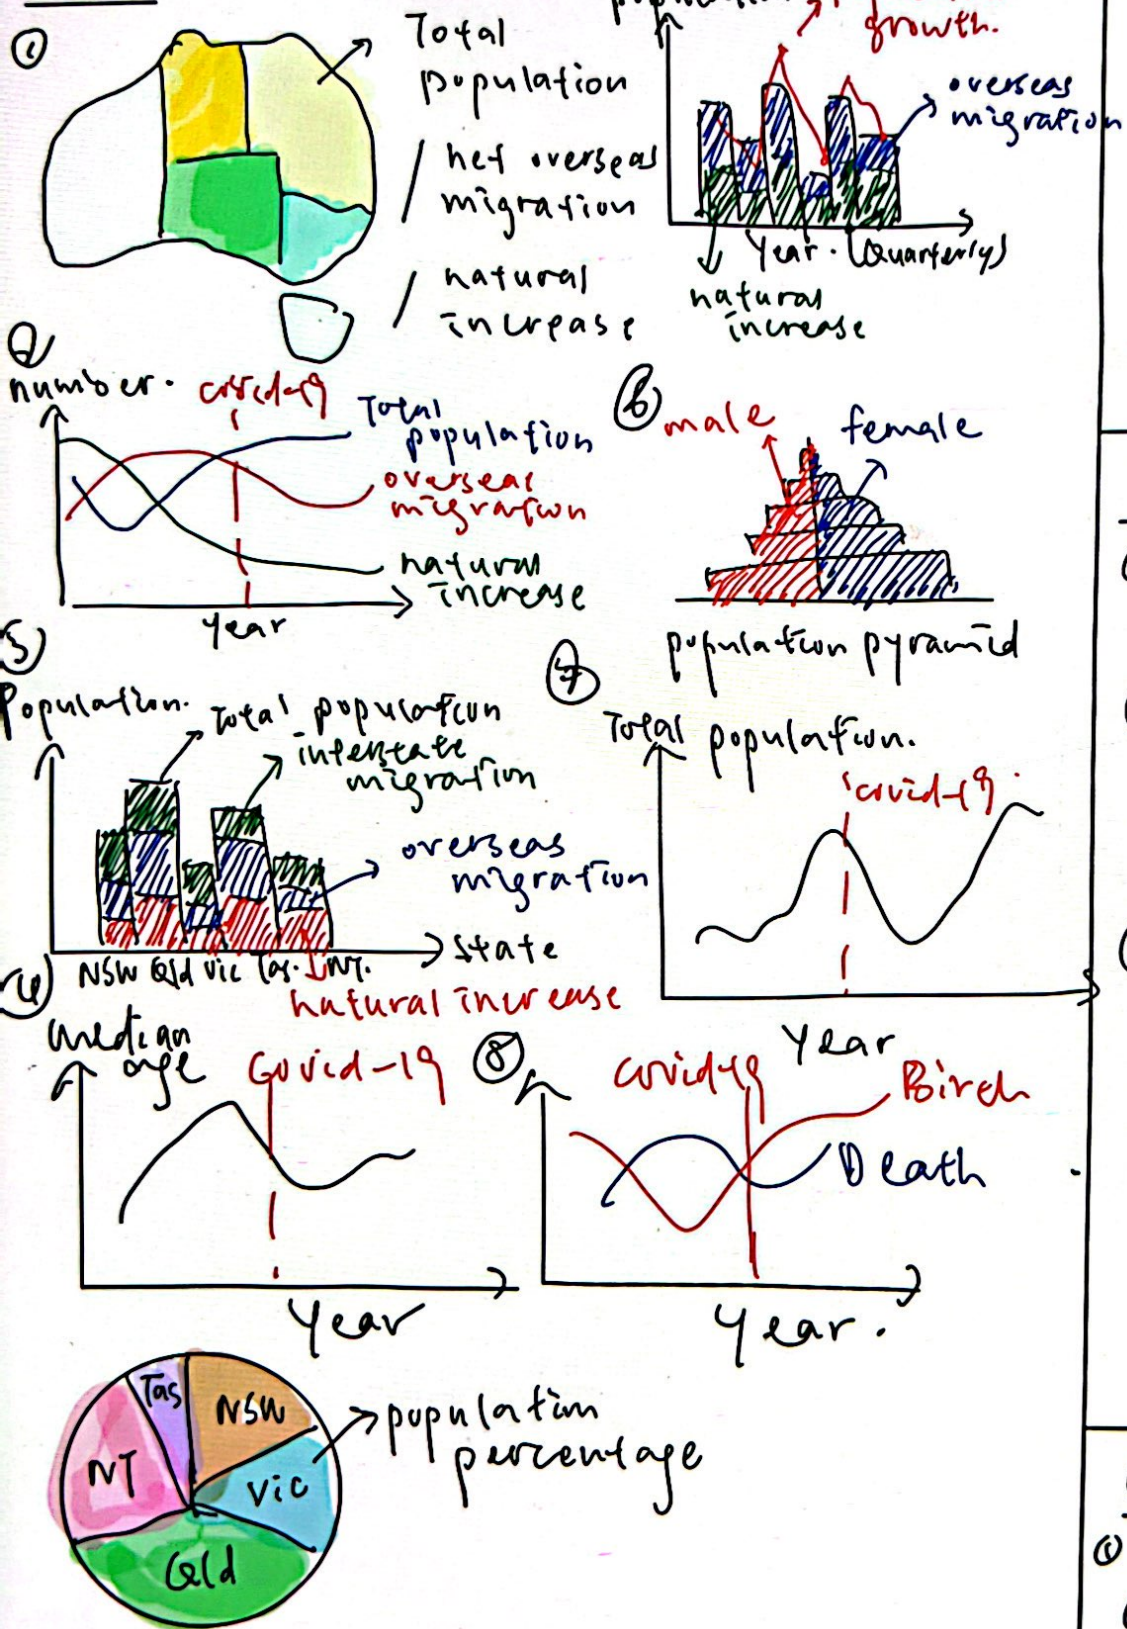 ①
Total
population
/ net overseas
migration
/ natural
increase
growth.
overseas
migration
Year. (Quarterly)
natural
increase
②
number.
covid-19
Total
population
overseas
migration
natural
increase
year
⑥
male
female
population pyramid
③
Population.
Total population
interstate
migration
overseas
migration
State
NSW Qld Vic Tas. NT.
natural increase
⑦
Total population.
covid-19
Year
④
median
age
Covid-19
Year
⑧
Covid-19
Birth
Death
Year.
Tas
NSW
NT
Vic
Qld
population
percentage